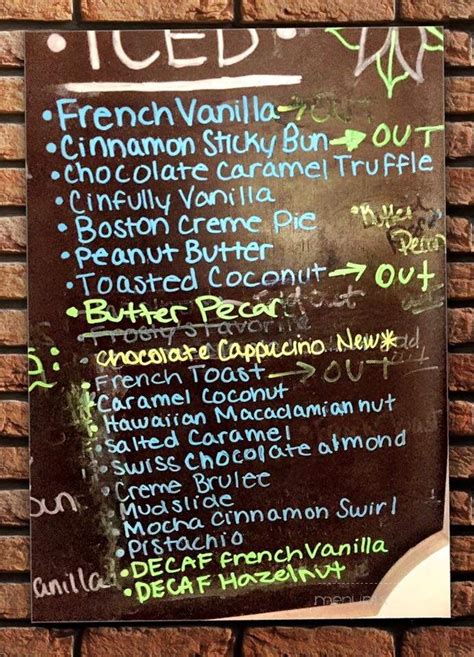 • ICED •
• French Vanilla → OUT
• Cinnamon Sticky Bun → OUT
• Chocolate Caramel Truffle
• Cinfully Vanilla
• Boston Creme Pie
*Butter Pecan
• Peanut Butter
• Toasted Coconut → Out
• Butter Pecan
Frosty's Favorite
• Chocolate Cappucino New*
• French Toast → OUT
• Caramel Coconut
• Hawaiian Macadamian nut
• Salted Caramel
• Swiss Chocolate almond
• Creme Brulee
• Mudslide
Mocha Cinnamon Swirl
• Pistachio
• DECAF French Vanilla
anilla
• DECAF Hazelnut